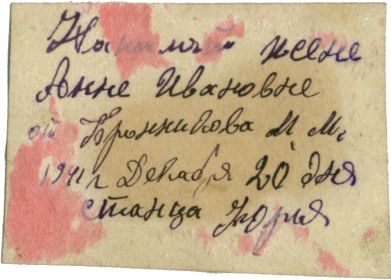 На памѧть жене
Анне Ивановне
от Бронникова М М.
1941 г Декабря 20 дня
станца Юрья